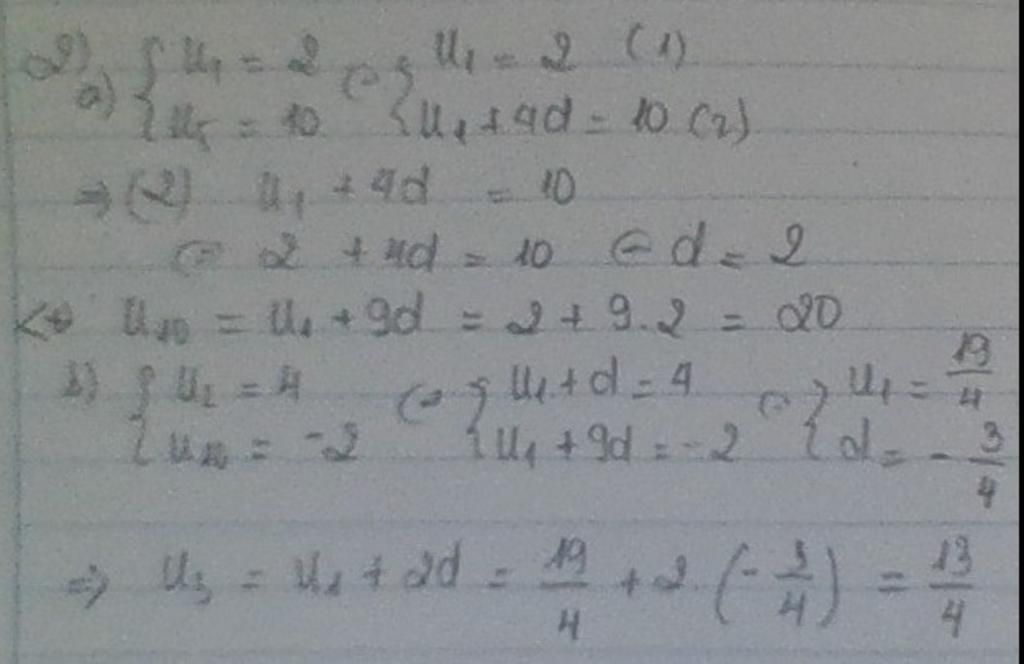 2) a) { u₁ = 2 ⇔ { u₁ = 2 (1)
{ u₅ = 10 { u₁ + 4d = 10 (2)
⇒ (2) u₁ + 4d = 10
⇔ 2 + 4d = 10 ⇔ d = 2
u₁₀ = u₁ + 9d = 2 + 9.2 = 20
b) { u₂ = 4 ⇔ { u₁ + d = 4 ⇔ { u₁ = 19/4
{ u₁₀ = -2 { u₁ + 9d = -2 { d = -3/4
⇒ u₃ = u₁ + 2d = 19/4 + 2.(-3/4) = 13/4